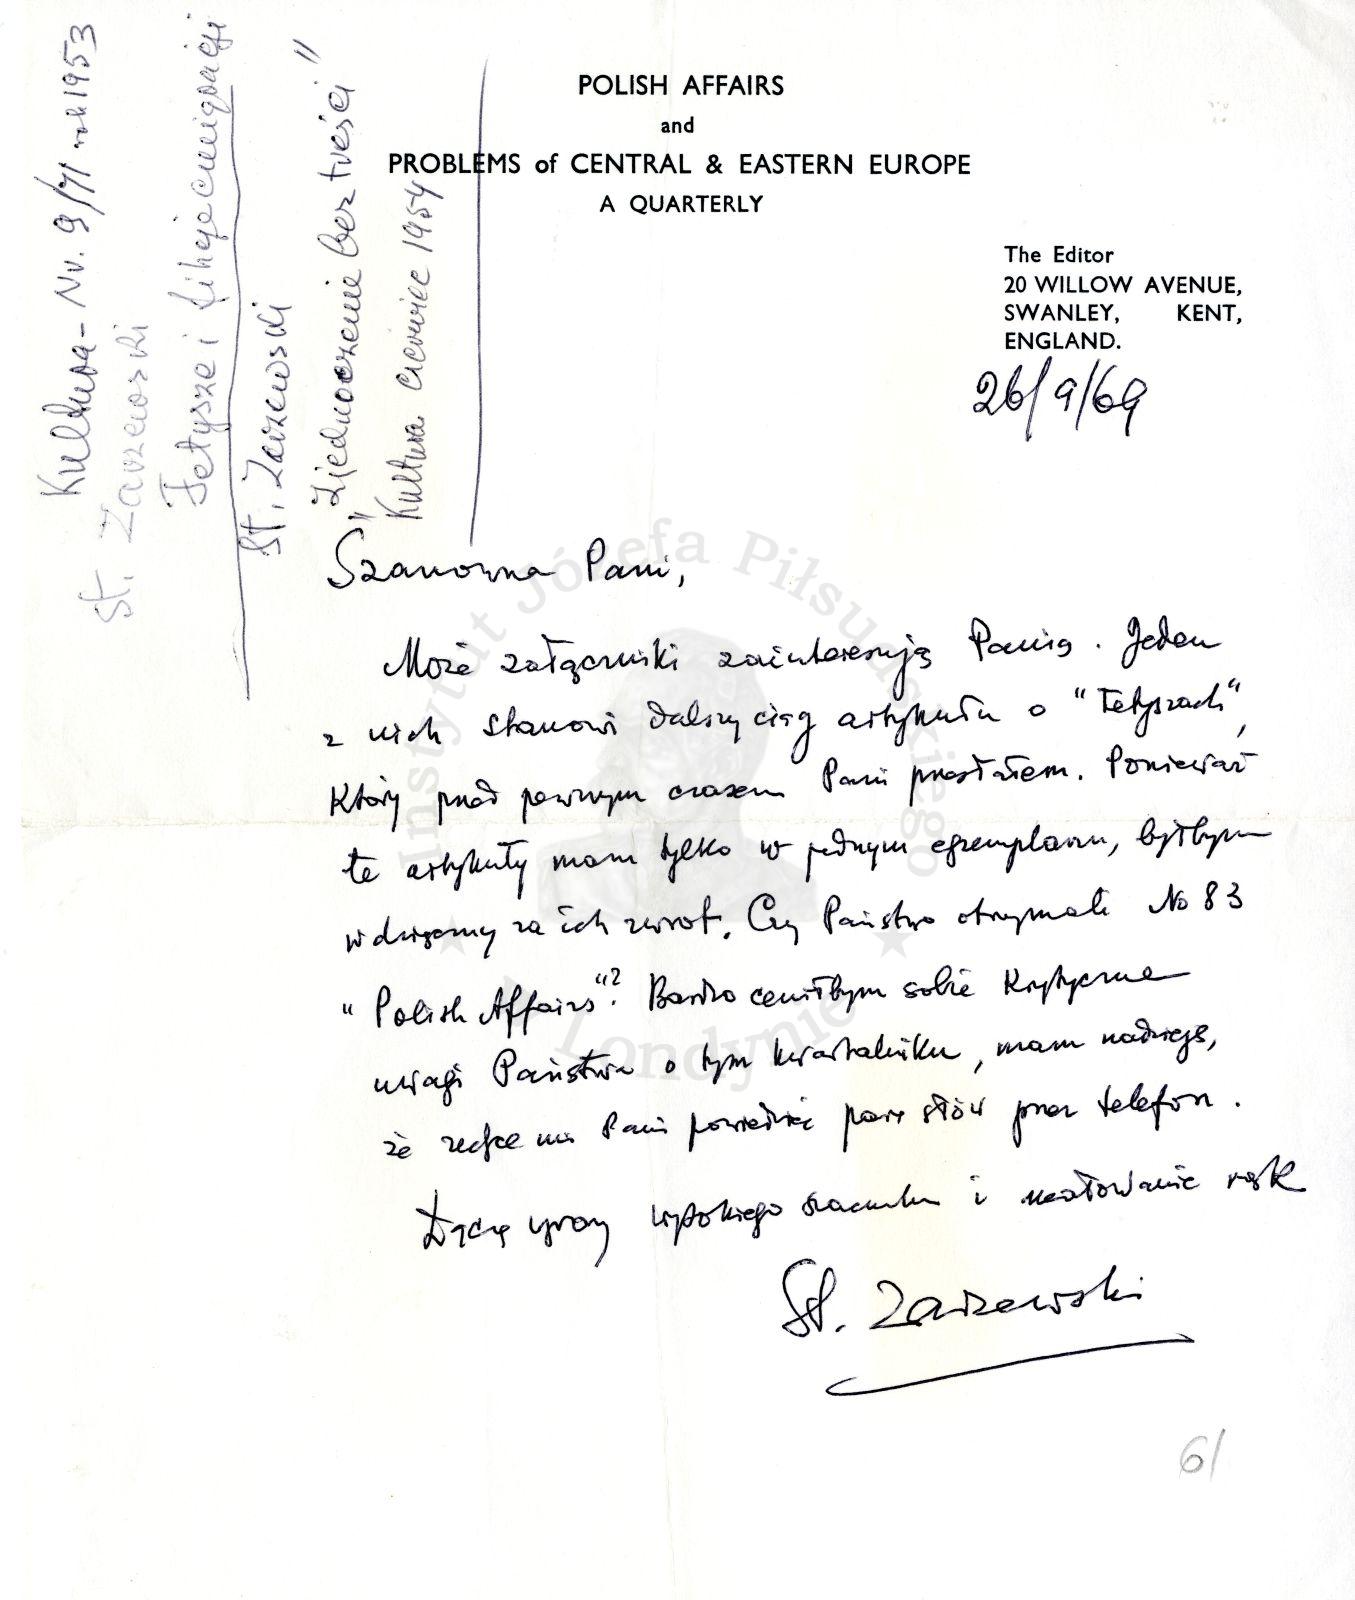 POLISH AFFAIRS
and
PROBLEMS of CENTRAL & EASTERN EUROPE
A QUARTERLY
The Editor
20 WILLOW AVENUE,
SWANLEY, KENT,
ENGLAND.
26/9/69
Kultura - Nr. 9/71 rok 1953
St. Zarzewski
Fetysze i fikcje emigracji
St. Zarzewski
"Zjednoczenie bez treści"
Kultura czerwiec 1954
Szanowna Pani,
Może załączniki zainteresują Panią. Jeden
z nich stanowi dalszy ciąg artykułu o "Fetyszach",
który przed pewnym czasem Pani przesłałem. Ponieważ
te artykuły mam tylko w jednym egzemplarzu, byłbym
wdzięczny za ich zwrot. Czy Państwo otrzymali No 83
"Polish Affairs"? Bardzo ceniłbym sobie krytyczne
uwagi Państwa o tym kwartalniku, mam nadzieję,
że zechce mi Pani powiedzieć parę słów przez telefon.
Łączę wyrazy wysokiego szacunku i ucałowanie rąk
St. Zarzewski
6/
Instytut Józefa Piłsudskiego
w Londynie